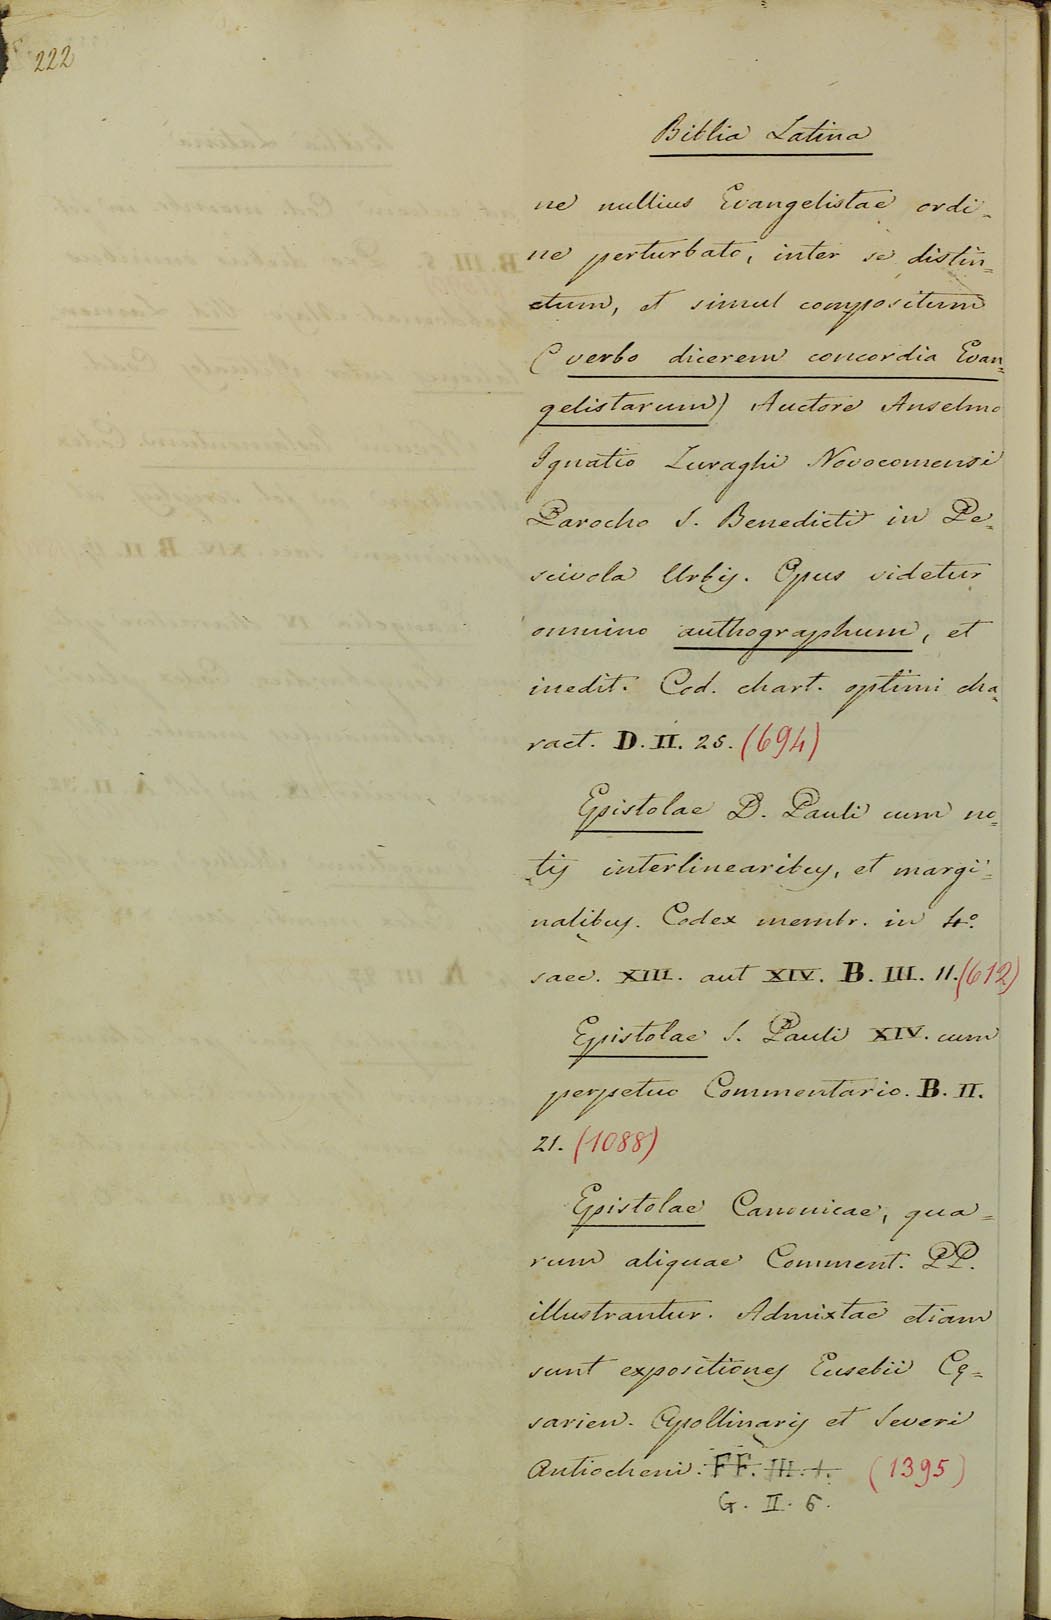 222
Biblia Latina
ne nullius Evangelistae ordi=
ne perturbato, inter se distin=
ctum, et simul compositum
(verbo dicerem concordia Evan=
gelistarum) Auctore Anselmo
Ignatio Luraghi Novocomensi
Parocho S. Benedicti in Pe=
scivola Urbis. Opus videtur
omnino authographum, et
inedit. Cod. chart. optimi cha=
ract. D. II. 25. (694)
Epistolae D. Pauli cum no=
tis interlinearibus, et margi=
nalibus. Codex membr. in 4.º
saec. XIII. aut XIV. B. III. 11. (612)
Epistolae S. Pauli XIV. cum
perpetuo Commentario. B. II.
21. (1088)
Epistolae Canonicae, qua=
rum aliquae Comment. PP.
illustrantur. Admixtae etiam
sunt expositiones Eusebii Cę=
sarien. Apollinaris et Severi
Antiocheni. FF. III. 1. (1395)
G. II. 6.